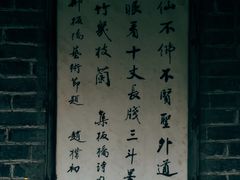 仙不佛不賢聖外道
眼看十丈長牋三斗墨
竹幾枝蘭 集板橋詩
鄭板橋藝術節題 趙樸初